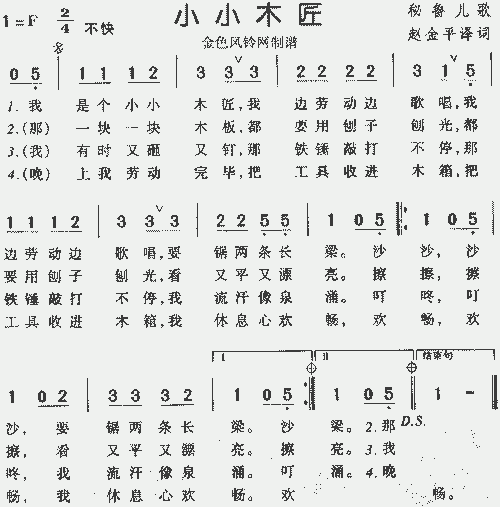 小小木匠
1=F 2/4 不快
秘鲁儿歌
金色风铃网制谱
赵金平译词
0 5 | 1 1 1 2 | 3 3 3 | 2 2 2 2 | 3 1 5 |
1.我 是个小小 木匠,我 边劳动边 歌唱,我
2.(那) 一块一块 木板,都 要用刨子 刨光,都
3.(我) 有时又砸 又钉,那 铁锤敲打 不停,那
4.(晚) 上我劳动 完毕,把 工具收进 木箱,把
1 1 1 2 | 3 3 3 | 2 2 5 5 | 1 0 5 | 1 0 5 |
边劳动边 歌唱,要 锯两条长 梁。沙 沙,沙
要用刨子 刨光,看 又平又漂 亮。擦 擦,擦
铁锤敲打 不停,我 流汗像泉 涌。叮 咚,叮
工具收进 木箱,我 休息心欢 畅,欢 畅,欢
1 2 结束句
1 0 2 | 3 3 3 2 | 1 0 5 | 1 0 5 | 1 -
D.S.
沙,要 锯两条长 梁。沙 梁。2.那
擦,看 又平又漂 亮。擦 亮。3.我
咚,我 流汗像泉 涌。叮 涌。4.晚
畅,我 休息心欢 畅。欢 畅。